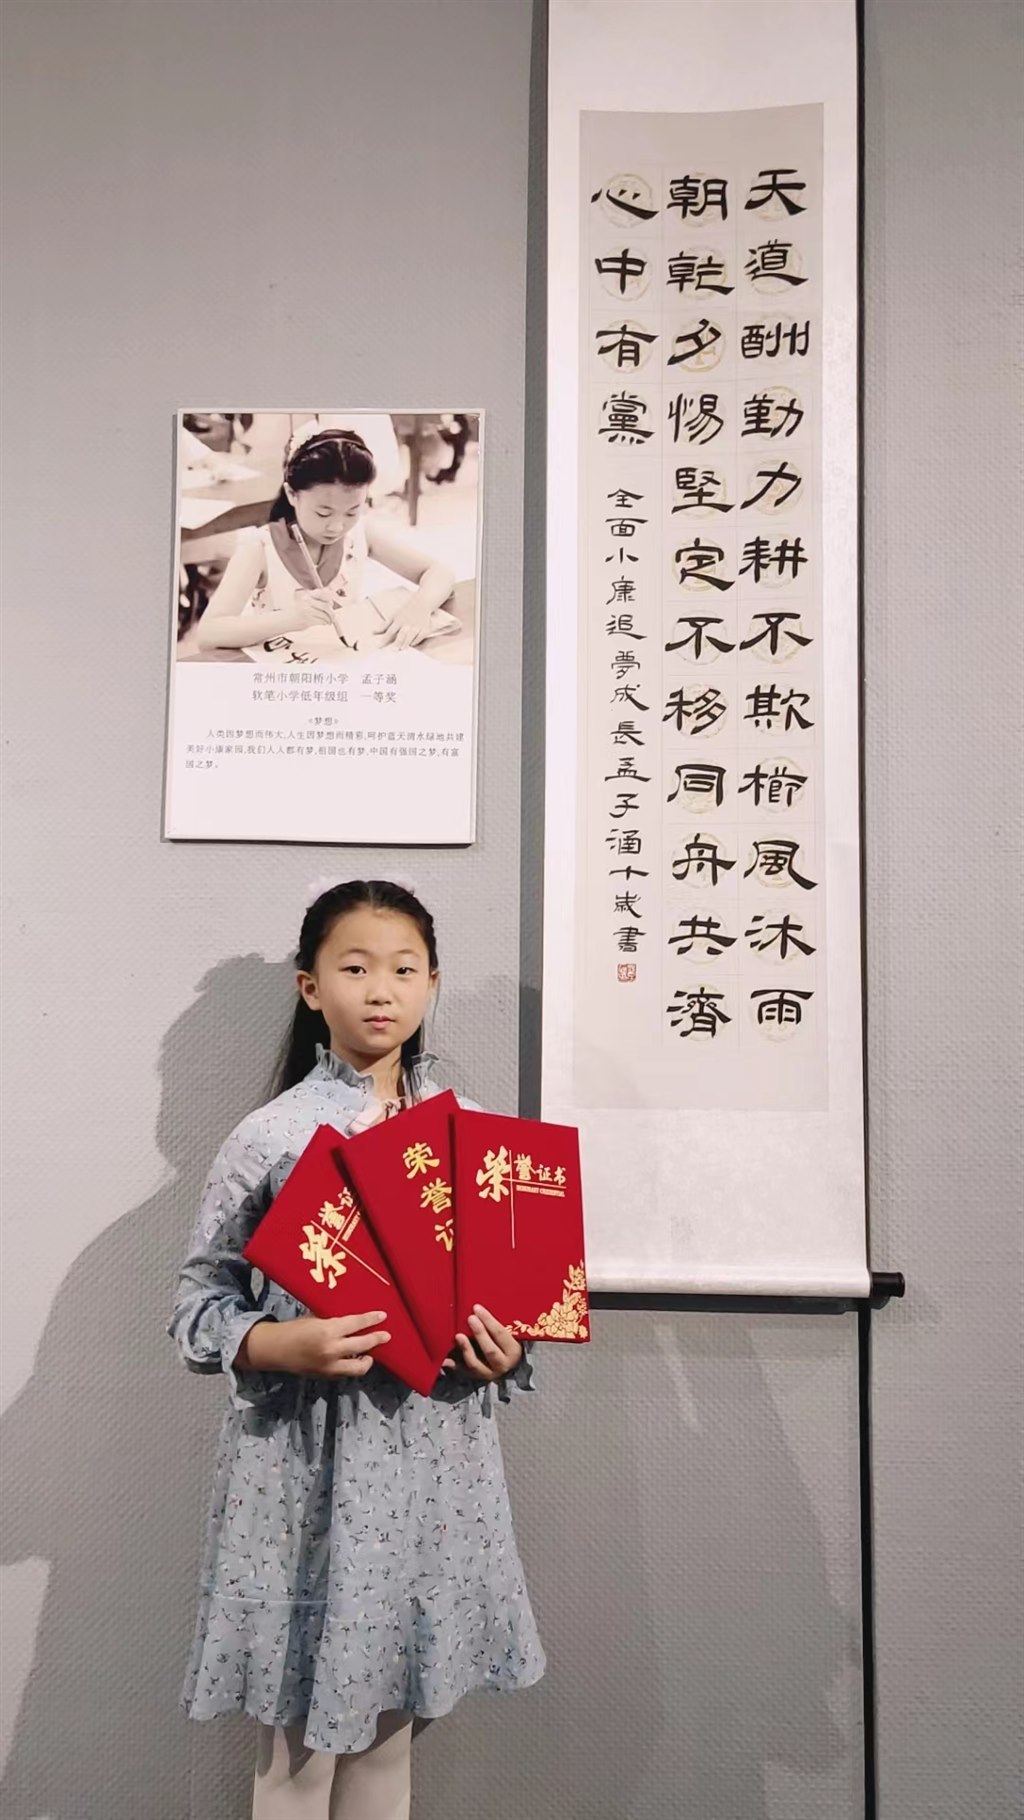 天道酬勤力耕不欺櫛風沐雨
朝乾夕惕堅定不移同舟共濟
心中有黨
全面小康追夢成長孟子涵十歲書
常州市朝阳桥小学 孟子涵
软笔小学低年级组 一等奖
《梦想》
人类因梦想而伟大,人生因梦想而精彩,呵护蓝天清水绿地共建
美好小康家园,我们人人都有梦,祖国也有梦,中国有强国之梦,有富
国之梦。
荣誉证
荣誉证
荣誉证书
HONORARY CREDENTIAL